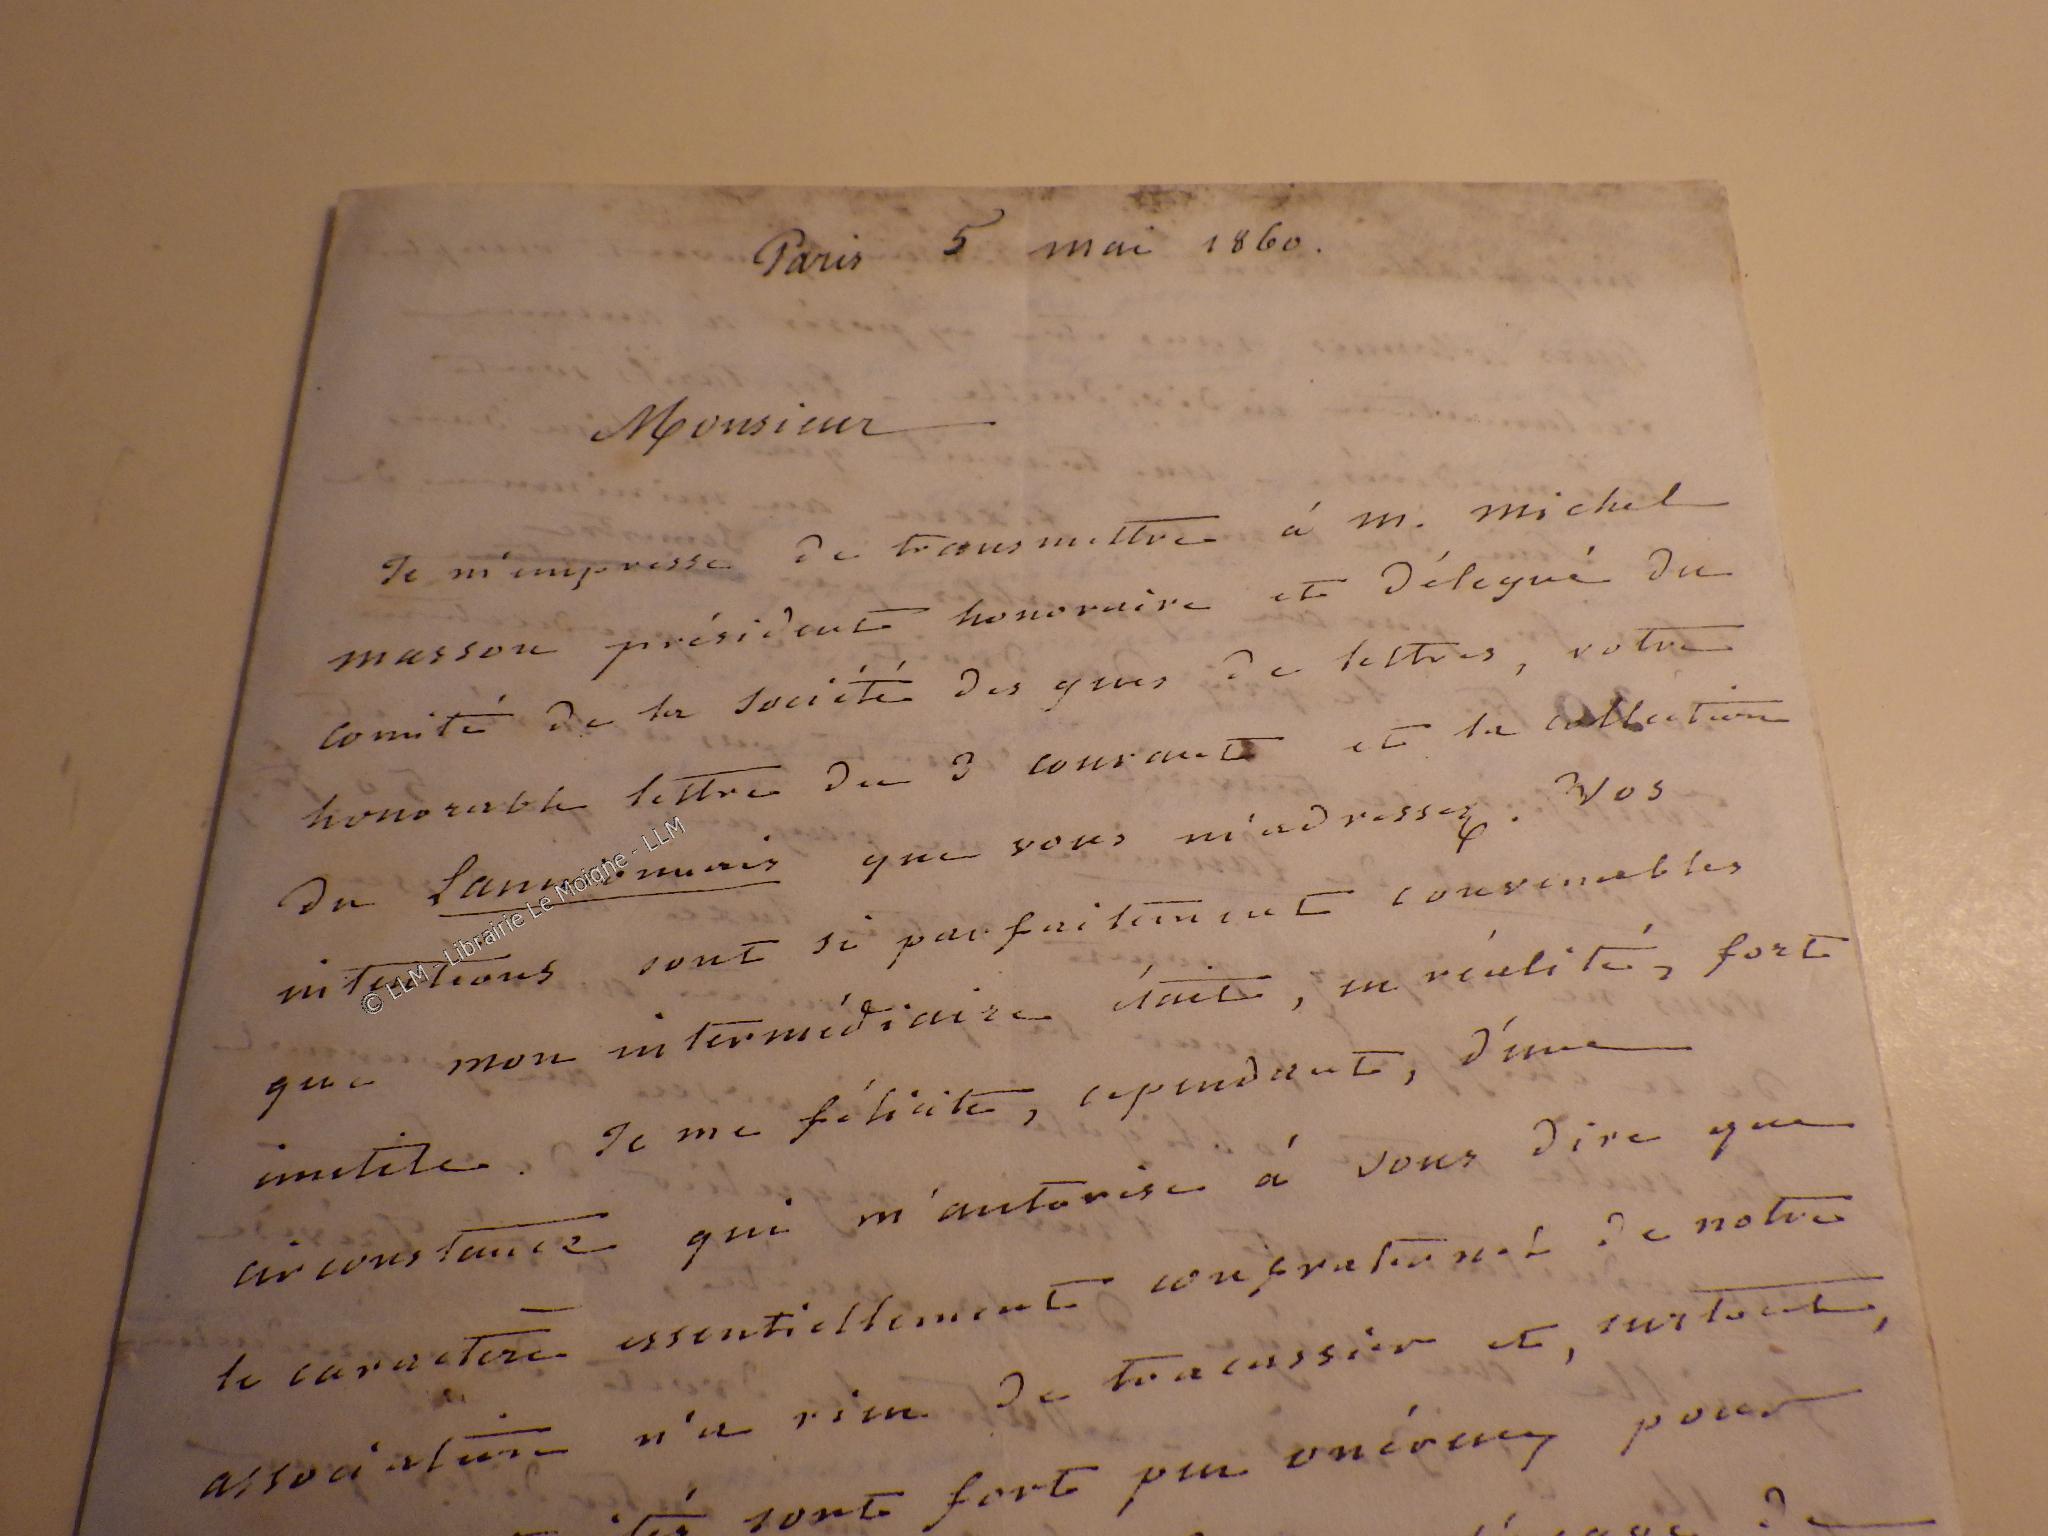 Paris 5 mai 1860.
Monsieur
Je m'empresse de transmettre à M. Michel
Masson président honoraire et délégué du
comité de la société des gens de lettres, votre
honorable lettre du 3 courant et la collection
du Lannionnais que vous m'adressez. Vos
intentions sont si parfaitement convenables
que mon intermédiaire était, en réalité, fort
inutile. Je me félicite, cependant, d'une
circonstance qui m'autorise à vous dire que
le caractère essentiellement confraternel de notre
association n'a rien de tracassier et, surtout,
sont fort peu onéreux pour
de
© LLM - Librairie Le Moigne - LLM